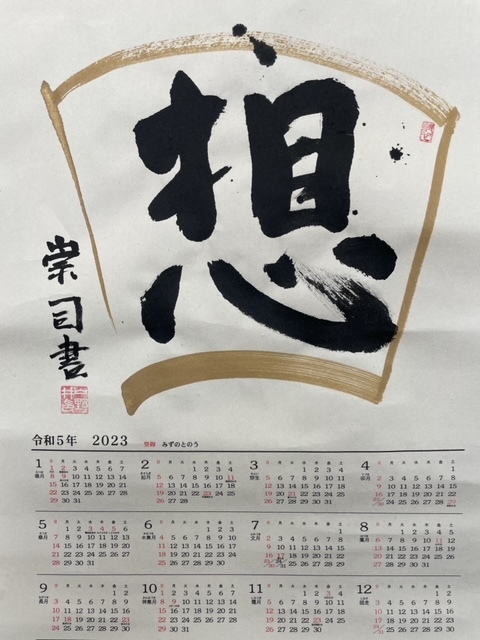 想
崇司書
令和5年 2023 癸卯 みずのとのう
1 睦月
日 月 火 水 木 金 土
1 2 3 4 5 6 7
8 9 10 11 12 13 14
15 16 17 18 19 20 21
22 23 24 25 26 27 28
29 30 31
2 如月
日 月 火 水 木 金 土
1 2 3 4
5 6 7 8 9 10 11
12 13 14 15 16 17 18
19 20 21 22 23 24 25
26 27 28
3 弥生
日 月 火 水 木 金 土
1 2 3 4
5 6 7 8 9 10 11
12 13 14 15 16 17 18
19 20 21 22 23 24 25
26 27 28 29 30 31
4 卯月
日 月 火 水 木 金 土
1
2 3 4 5 6 7 8
9 10 11 12 13 14 15
16 17 18 19 20 21 22
23/30 24 25 26 27 28 29
5 皐月
日 月 火 水 木 金 土
1 2 3 4 5 6
7 8 9 10 11 12 13
14 15 16 17 18 19 20
21 22 23 24 25 26 27
28 29 30 31
6 水無月
日 月 火 水 木 金 土
1 2 3
4 5 6 7 8 9 10
11 12 13 14 15 16 17
18 19 20 21 22 23 24
25 26 27 28 29 30
7 文月
日 月 火 水 木 金 土
1
2 3 4 5 6 7 8
9 10 11 12 13 14 15
16 17 18 19 20 21 22
23/30 24/31 25 26 27 28 29
8 葉月
日 月 火 水 木 金 土
1 2 3 4 5
6 7 8 9 10 11 12
13 14 15 16 17 18 19
20 21 22 23 24 25 26
27 28 29 30 31
9 長月
日 月 火 水 木 金 土
1 2
3 4 5 6 7 8 9
10 11 12 13 14 15 16
17 18 19 20 21 22 23
10 神無月
日 月 火 水 木 金 土
1 2 3 4 5 6 7
8 9 10 11 12 13 14
15 16 17 18 19 20 21
22 23 24 25 26 27 28
29 30 31
11 霜月
日 月 火 水 木 金 土
1 2 3 4
5 6 7 8 9 10 11
12 13 14 15 16 17 18
19 20 21 22 23 24 25
26 27 28 29 30
12
日 月 火 水 木 金 土
1 2
3 4 5 6 7 8 9
10 11 12 13 14 15 16
17 18 19 20 21 22 23